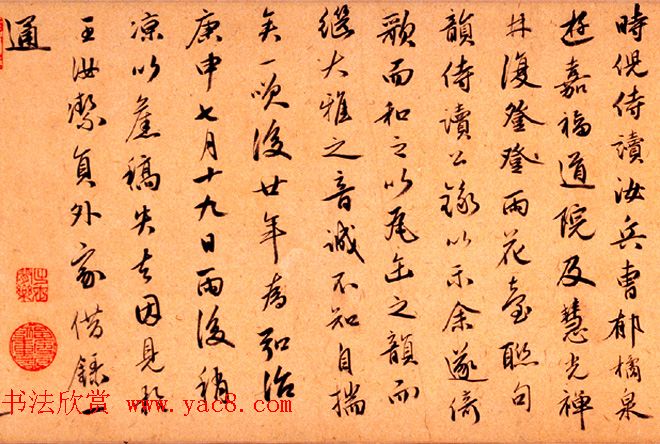 時倪侍讀汝兵曹郁橘泉
遊嘉福道院及慧光禪
林復登雨花臺聯句
韻侍讀公錄以示余遂倚
歌而和之以瓦缶之韻而
繼大雅之音誠不知自揣
矣一笑後廿年為弘治
庚申七月十九日雨後稍
涼以舊稿失去因見於
王汝潔員外家借錄一
通
书法欣赏 www.yac8.com